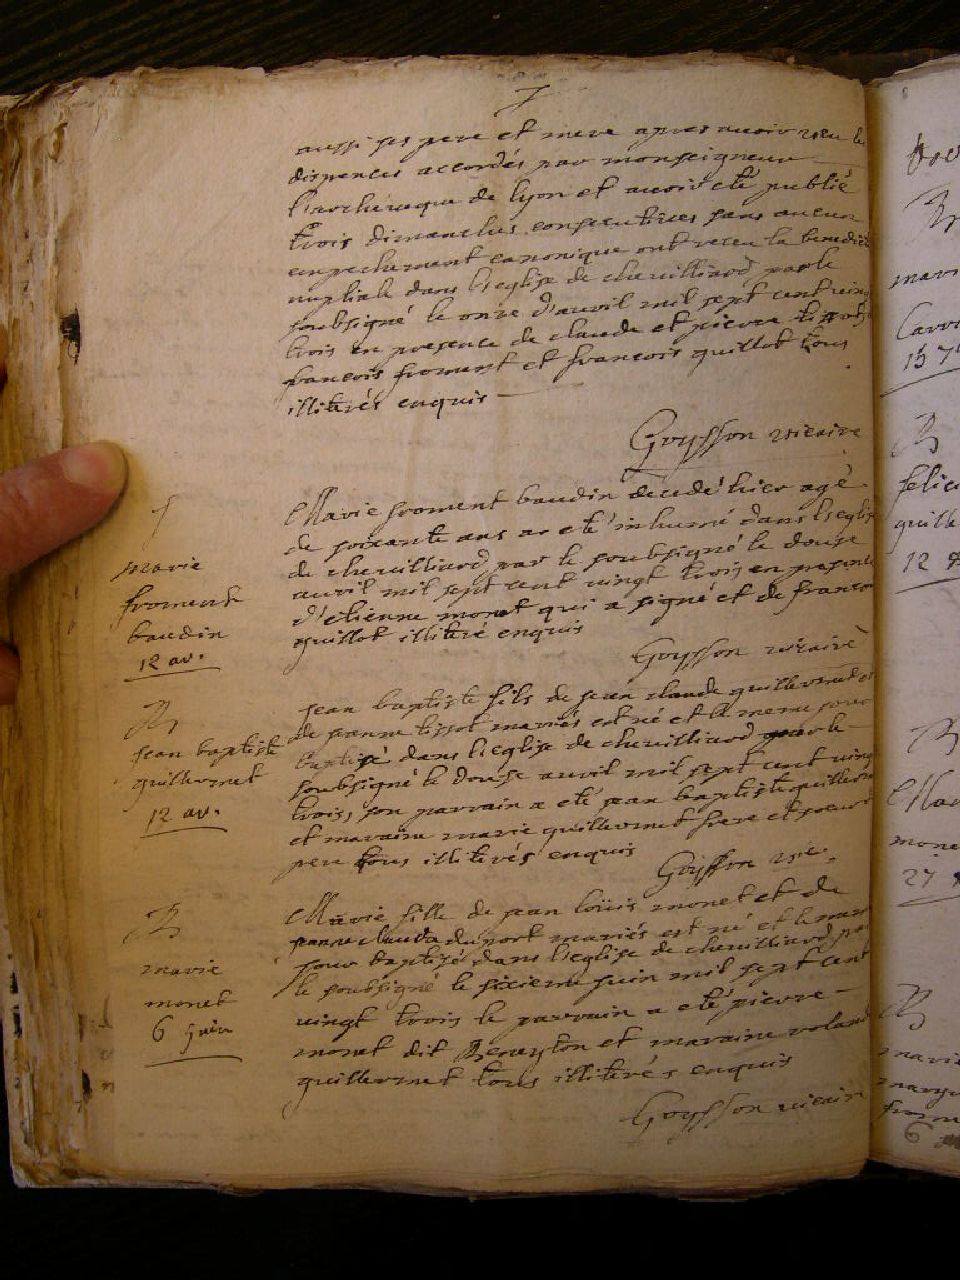 aussi ses pere et mere apres avoir veu les
dispences accordés par monseigneur
l'archeveque de lyon et avoir eté publié
trois dimanches consecutives sans aucun
empechement canonique ont receu la benedict
nuptiale dans l'eglise de chevilliard par le
soubsigné le onze d'avril mil sept cent vingt
trois en presence de claude et pierre tissot
francois froment et francois guillot tous
illiterés enquis
Goysson vicaire
marie
froment
baudin
12 av.
Marie froment baudin decedé hier agé
de soixante ans a eté inhumé dans l'eglise
de chevilliard par le soubsigné le douse
avril mil sept cent vingt trois en presence
d'etienne monet qui a signé et de francois
guillot illitiré enquis
Goysson vicaire
B
jean baptiste
guillermet
12 av.
jean baptiste fils de jean claude guillermet et
de jeanne tissot mariés est né et le meme jour
baptisé dans l'eglise de chevilliard par le
soubsigné le douse avril mil sept cent vingt
trois, son parrain a eté jean baptiste guillermet
et maraine marie guillermet frere et soeur
pere tous illitirés enquis
Goysson vic.
B
marie
monet
6 juin
Marie fille de jean louis monet et de
jeanne clauda duport mariés est né et le meme
jour baptisé dans l'eglise de chevilliard par
le soubsigné le sixieme juin mil sept cent
vingt trois le parrain a eté pierre
monet dit et maraine
guillermet tous illiterés enquis
Goysson vicaire
B
mari
15
B
felici
guill
12
B
Mar
mone
27
B
marie
6